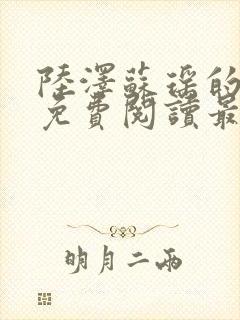 陸澤蘇瑶的
免費閱讀最
明月二兩